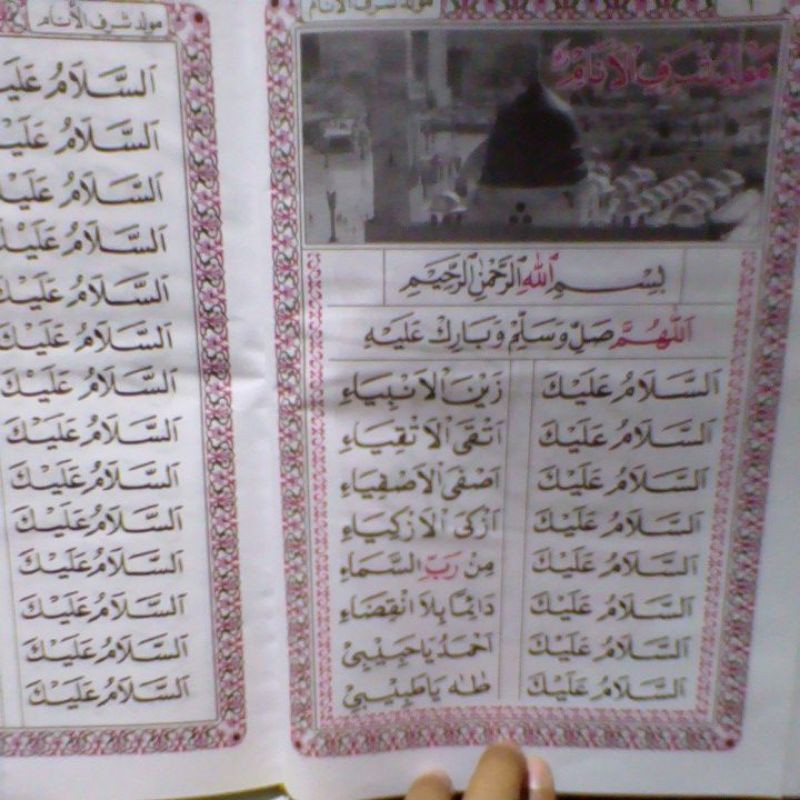 ١ مولد شرف الأنام
مولد شرف الأنام
بِسْمِ اللهِ الرَّحْمٰنِ الرَّحِيْمِ
اَللّٰهُمَّ صَلِّ وَسَلِّمْ وَبَارِكْ عَلَيْهِ
اَلسَّلَامُ عَلَيْكَ زَيْنَ الْاَنْبِيَاءِ
اَلسَّلَامُ عَلَيْكَ اَتْقَى الْاَتْقِيَاءِ
اَلسَّلَامُ عَلَيْكَ اَصْفَى الْاَصْفِيَاءِ
اَلسَّلَامُ عَلَيْكَ اَزْكَى الْاَزْكِيَاءِ
اَلسَّلَامُ عَلَيْكَ مِنْ رَبِّ السَّمَاءِ
اَلسَّلَامُ عَلَيْكَ دَائِمًا بِلَا انْقِضَاءِ
اَلسَّلَامُ عَلَيْكَ اَحْمَدُ يَا حَبِيْبِيْ
اَلسَّلَامُ عَلَيْكَ طٰهٰ يَا طَبِيْبِيْ
مولد شرف الأنام
اَلسَّلَامُ
اَلسَّلَامُ
اَلسَّلَامُ
اَلسَّلَامُ عَلَيْكَ
اَلسَّلَامُ عَلَيْكَ
اَلسَّلَامُ عَلَيْكَ
اَلسَّلَامُ عَلَيْكَ
اَلسَّلَامُ عَلَيْكَ
اَلسَّلَامُ عَلَيْكَ
اَلسَّلَامُ عَلَيْكَ
اَلسَّلَامُ عَلَيْكَ
اَلسَّلَامُ عَلَيْكَ
اَلسَّلَامُ عَلَيْكَ
اَلسَّلَامُ عَلَيْكَ